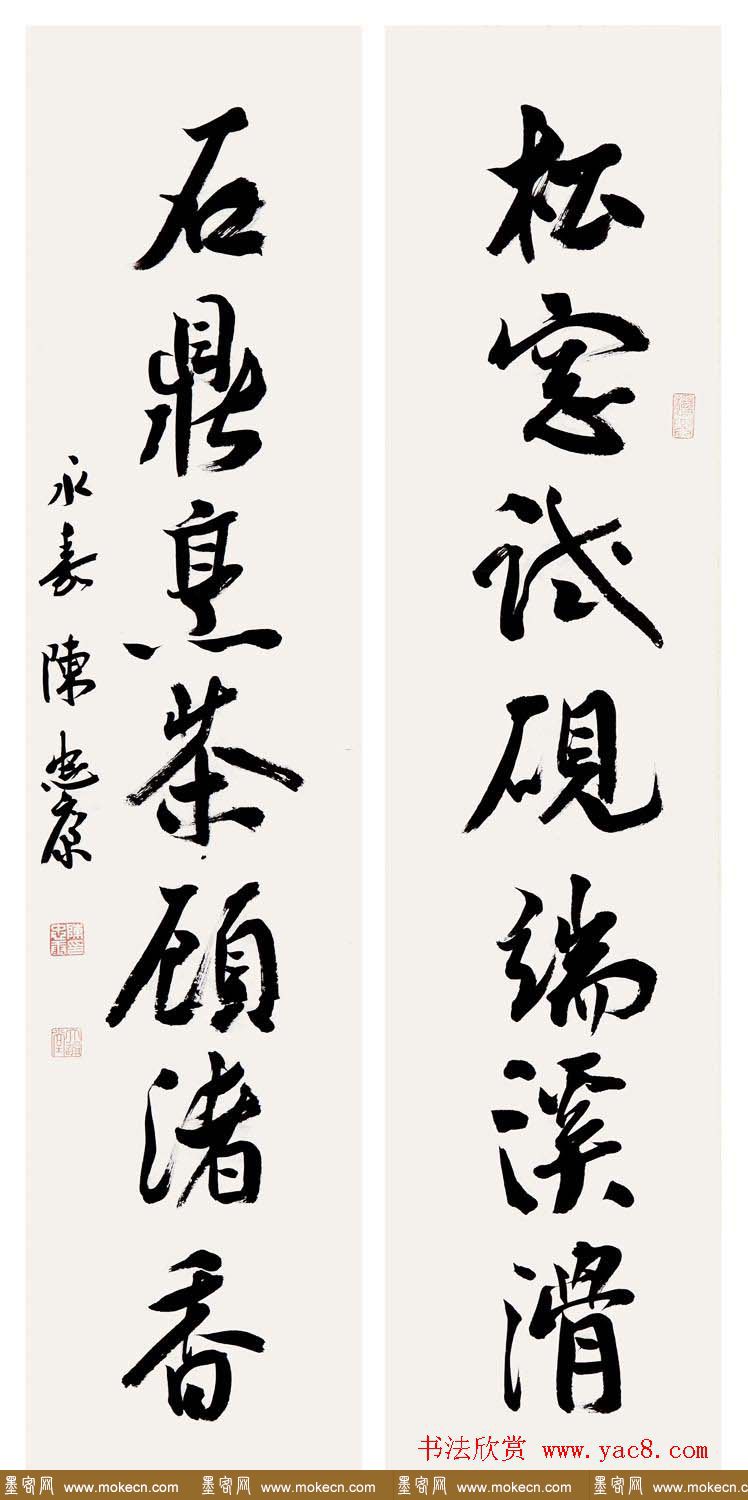 松窓試硯端溪滑
石鼎烹茶顧渚香
永嘉陳忠康
書法欣赏 www.yac8.com
墨客网 www.mokecn.com 墨客网 www.mokecn.com 墨客网 www.mokecn.com 墨客网 www.mokecn.com